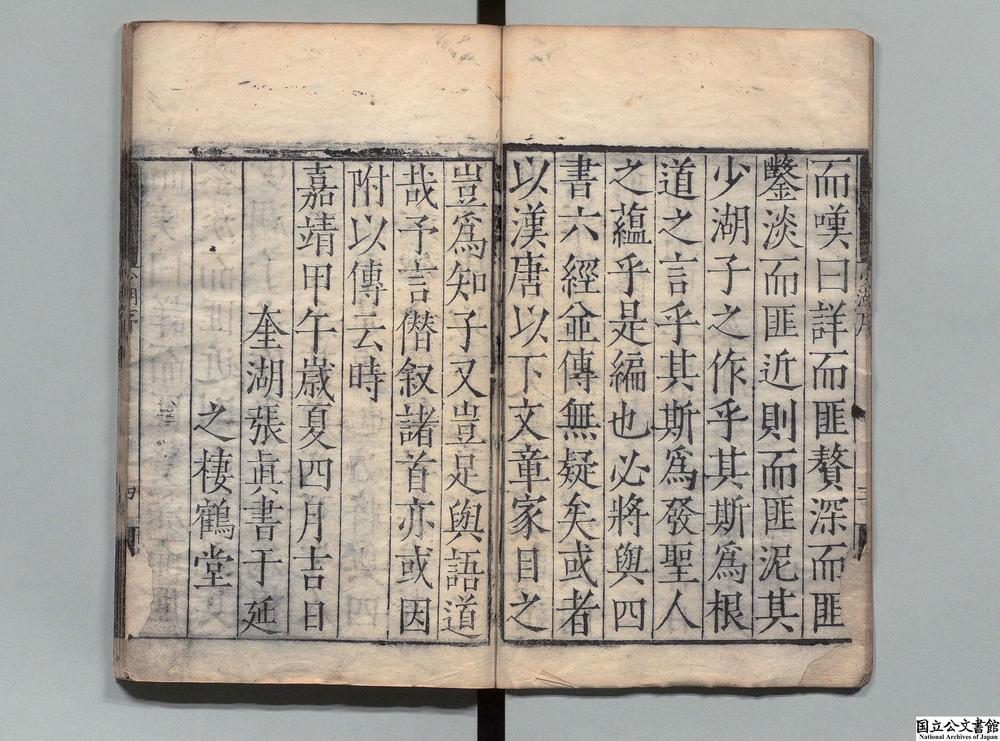 而嘆曰詳而匪贅深而匪
鑿淡而匪近則而匪泥其
少湖子之作乎其斯爲根
道之言乎其斯爲發聖人
之蘊乎是編也必將與四
書六經並傳無疑矣或者
以漢唐以下文章家目之
豈爲知子又豈足與語道
哉予言僭叙諸首亦或因
附以傳云時
嘉靖甲午歲夏四月吉日
奎湖張真書于延
之棲鶴堂
四
国立公文書館
National Archives of Japan